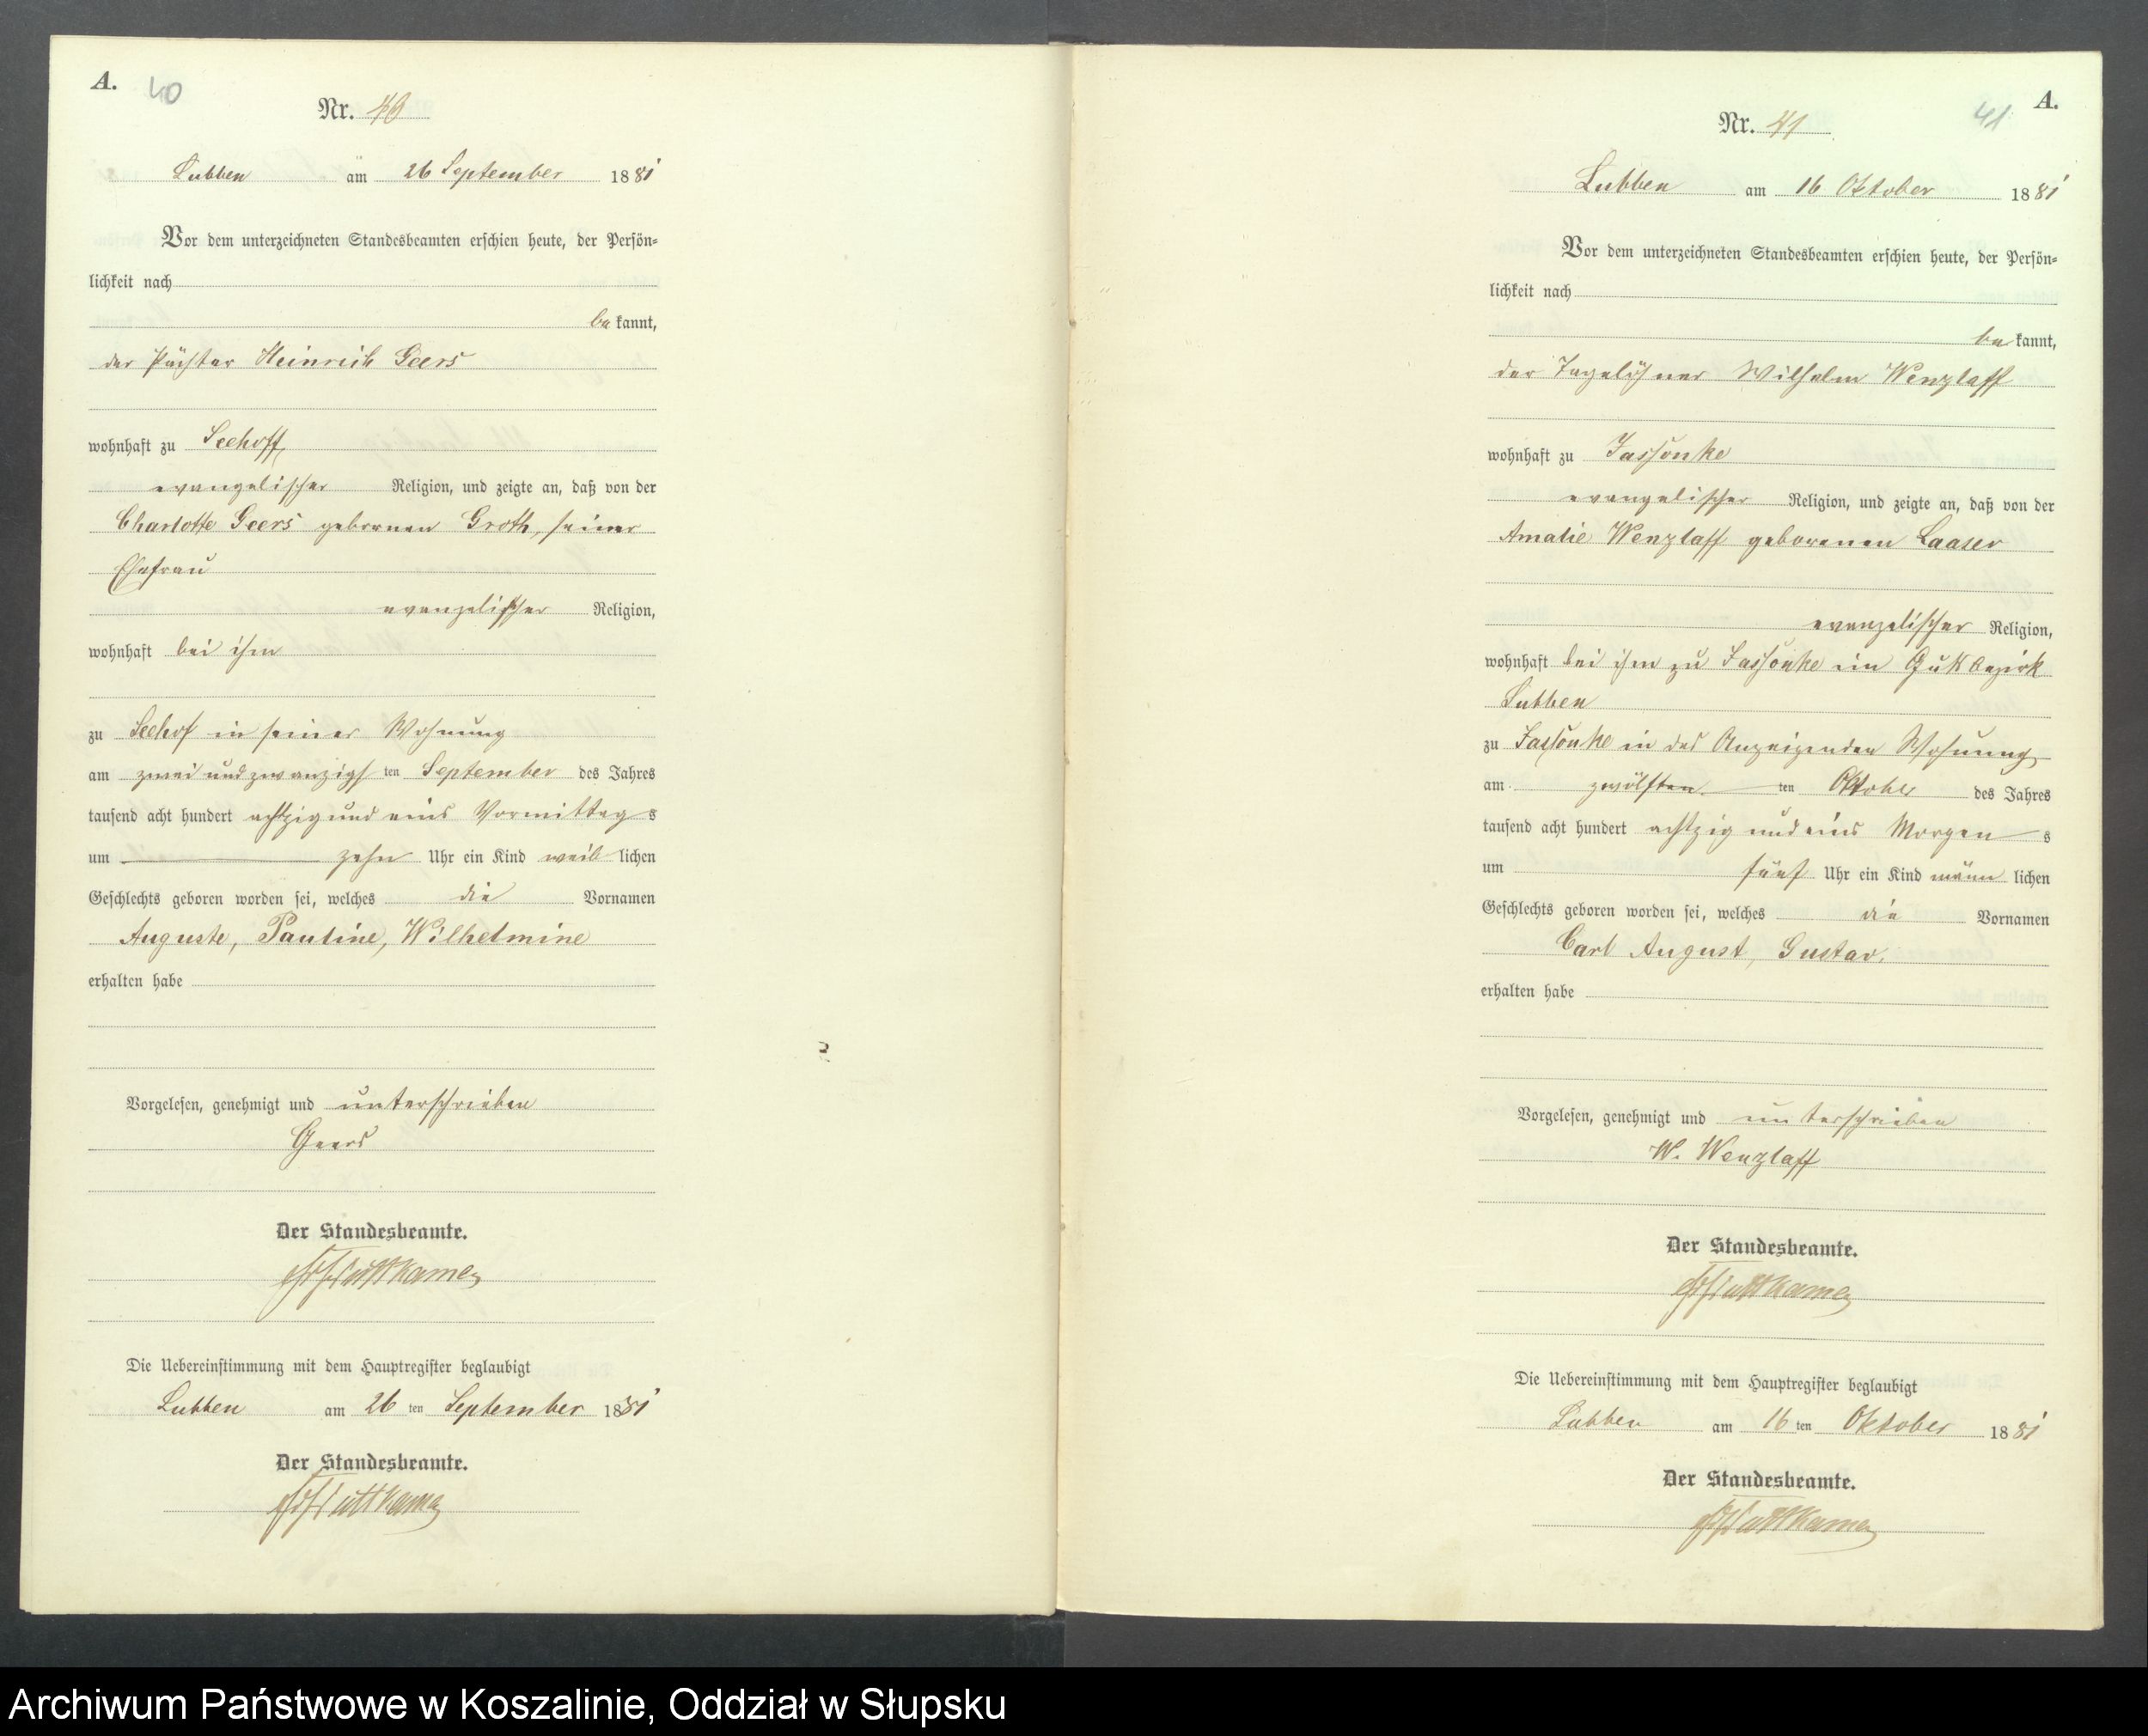 A.
40
Nr. 40
Lubben am 26 September 1881
Vor dem unterzeichneten Standesbeamten erschien heute, der Persön-
lichkeit nach
bekannt,
der Pächter Heinrich Geers
wohnhaft zu Seehoff
evangelischer Religion, und zeigte an, daß von der
Charlotte Geers geborenen Groth, seiner
Ehefrau
evangelischer Religion,
wohnhaft bei ihm
zu Seehof in seiner Wohnung
am zwei und zwanzigsten September des Jahres
tausend acht hundert achtzig und eins Vormittags
um zehn Uhr ein Kind weiblichen
Geschlechts geboren worden sei, welches die Vornamen
Auguste, Pauline, Wilhelmine
erhalten habe
Vorgelesen, genehmigt und unterschrieben
Geers
Der Standesbeamte.
Puttkamer
Die Uebereinstimmung mit dem Hauptregister beglaubigt
Lubben am 26 ten September 1881
Der Standesbeamte.
Puttkamer
A.
41
Nr. 41
Lubben am 16 Oktober 1881
Vor dem unterzeichneten Standesbeamten erschien heute, der Persön-
lichkeit nach
bekannt,
der Tagelöhner Wilhelm Wenzlaff
wohnhaft zu Jassonke
evangelischer Religion, und zeigte an, daß von der
Amalie Wenzlaff geborenen Laaser
evangelischer Religion,
wohnhaft bei ihm zu Jassonke im Gutsbezirk
Lubben
zu Jassonke in des Anzeigenden Wohnung
am zwölften ten Oktober des Jahres
tausend acht hundert achtzig und eins Morgens
um fünf Uhr ein Kind männlichen
Geschlechts geboren worden sei, welches die Vornamen
Carl August, Gustav,
erhalten habe
Vorgelesen, genehmigt und unterschrieben
W. Wenzlaff
Der Standesbeamte.
Puttkamer
Die Uebereinstimmung mit dem Hauptregister beglaubigt
Lubben am 16 ten Oktober 1881
Der Standesbeamte.
Puttkamer
Archiwum Państwowe w Koszalinie, Oddział w Słupsku